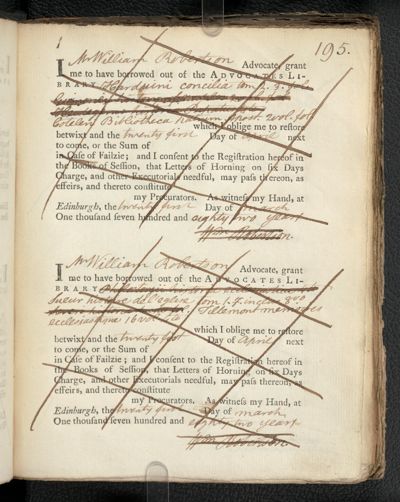 195.
I Mr William Robertson Advocate, grant
me to have borrowed out of the ADVOCATES LI-
BRARY Harduini concilia tom
Coteleri Bibliotheca Patrum 2 vol. fol.
which I oblige me to restore
betwixt and the twenty first Day of April next
to come, or the Sum of
in Case of Failzie; and I consent to the Registration hereof in
the Books of Session, that Letters of Horning on six Days
Charge, and other Executorials needful, may pass thereon, as
effeirs, and thereto constitute
my Procurators. As witness my Hand, at
Edinburgh, the twenty first Day of March
One thousand seven hundred and eighty two years
Wm Robertson.
I Mr William Robertson Advocate, grant
me to have borrowed out of the ADVOCATES LI-
BRARY
sueur histoire de l'eglise tom 8vo
Tillemont memoires
ecclesiastique 16 vol
which I oblige me to restore
betwixt and the twenty first Day of April next
to come, or the Sum of
in Case of Failzie; and I consent to the Registration hereof in
the Books of Session, that Letters of Horning on six Days
Charge, and other Executorials needful, may pass thereon, as
effeirs, and thereto constitute
my Procurators. As witness my Hand, at
Edinburgh, the twenty first Day of march
One thousand seven hundred and eighty two years
Wm Robertson.